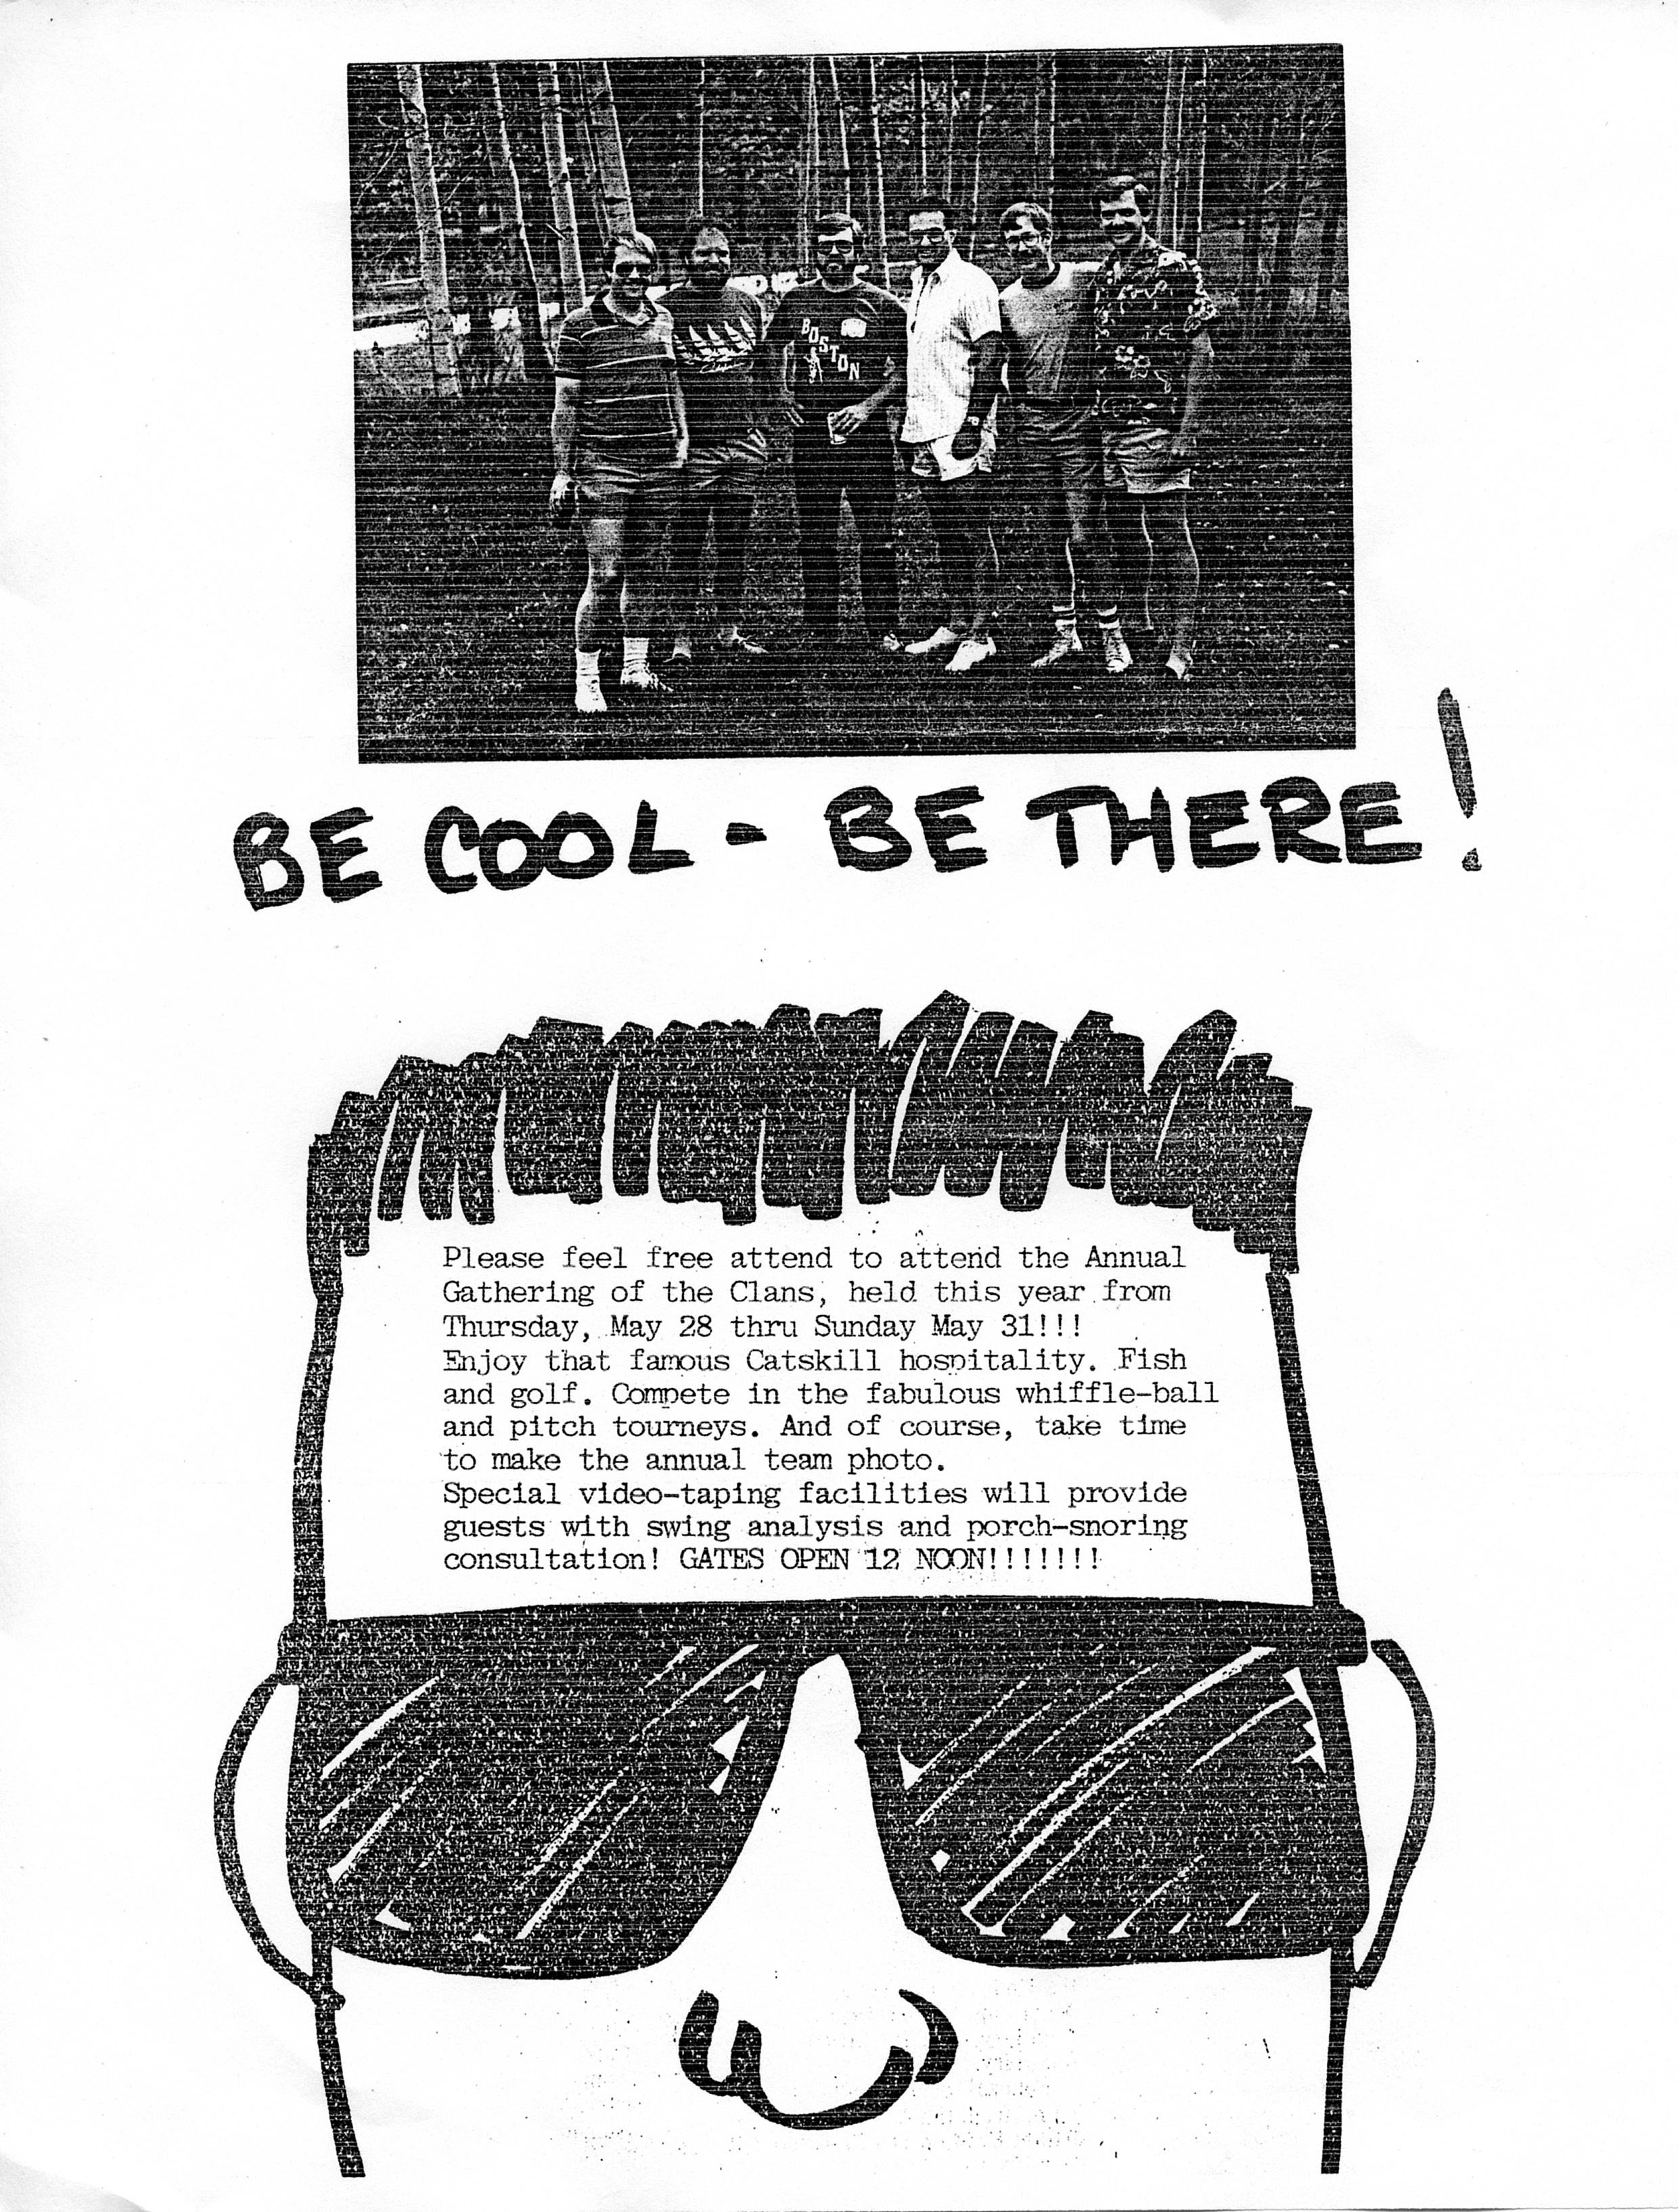 BOSTON
BE COOL - BE THERE!
Please feel free attend to attend the Annual
Gathering of the Clans, held this year from
Thursday, May 28 thru Sunday May 31!!!
Enjoy that famous Catskill hospitality. Fish
and golf. Compete in the fabulous whiffle-ball
and pitch tourneys. And of course, take time
to make the annual team photo.
Special video-taping facilities will provide
guests with swing analysis and porch-snoring
consultation! GATES OPEN 12 NOON!!!!!!!